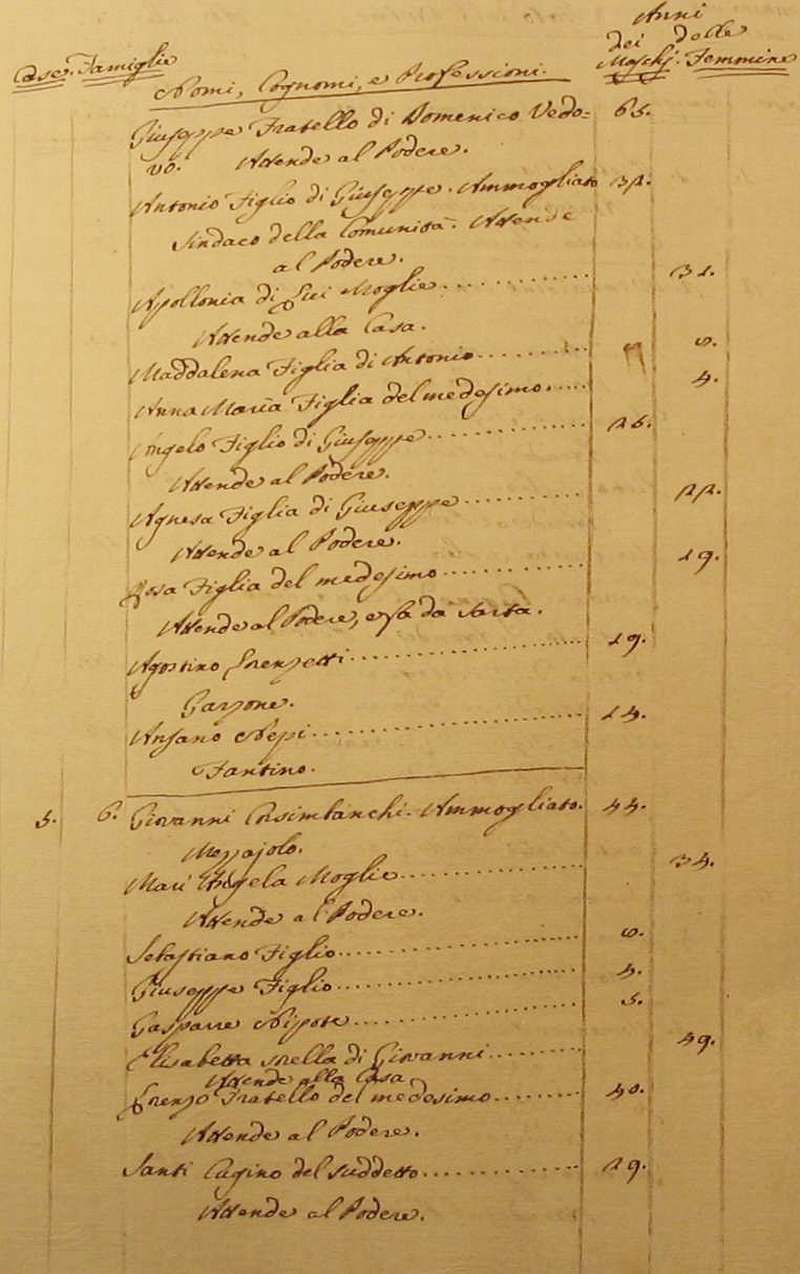 Anni
dei delle
Case. Famiglie Maschj. Femmine
Nomi, Cognomi, e Professioni.
Giuseppe Fratello di Domenico Vedo= 65.
vo. Attende al Podere.
Antonio Figlio di Giuseppe. Ammogliato 32.
Sindaco della Comunità. Attende
al Podere.
Apollonia di Lui Moglie 31.
Attende alla Casa.
Maddalena Figlia di Antonio
Anna Maria Figlia del medesimo. 4.
Angelo Figlio di Giuseppe 25.
Attende al Podere.
Agnesa Figlia di Giuseppe 22.
Attende al Podere.
Rosa Figlia del medesimo 19.
Attende al Podere, e fà da Sarta.
Agostino Lorenzetti 19.
Garzone.
Ansano Nepi 14.
Fantino.
5. 6. Giovanni Casimbanchi. Ammogliato. 44.
Mezzajolo.
Mari Angela Moglie 34.
Attende al Podere.
Sebastiano Figlio
Giuseppe Figlio 4.
Gaspare Nipote 5.
Elisabetta Sorella di Giovanni 49.
Attende alla Casa
Lorenzo Fratello del medesimo 40.
Attende al Podere.
Santi Cugino del suddetto 29.
Attende al Podere.